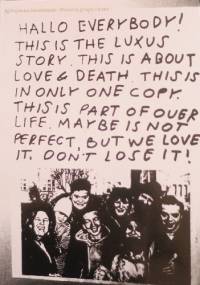 HALLO EVERYBODY!
THIS IS THE LUXUS
STORY. THIS IS ABOUT
LOVE & DEATH. THIS IS
IN ONLY ONE COPY.
THIS IS PART OF OUER
LIFE. MAYBE IS NOT
PERFECT, BUT WE LOVE
IT. DON'T LOSE IT!